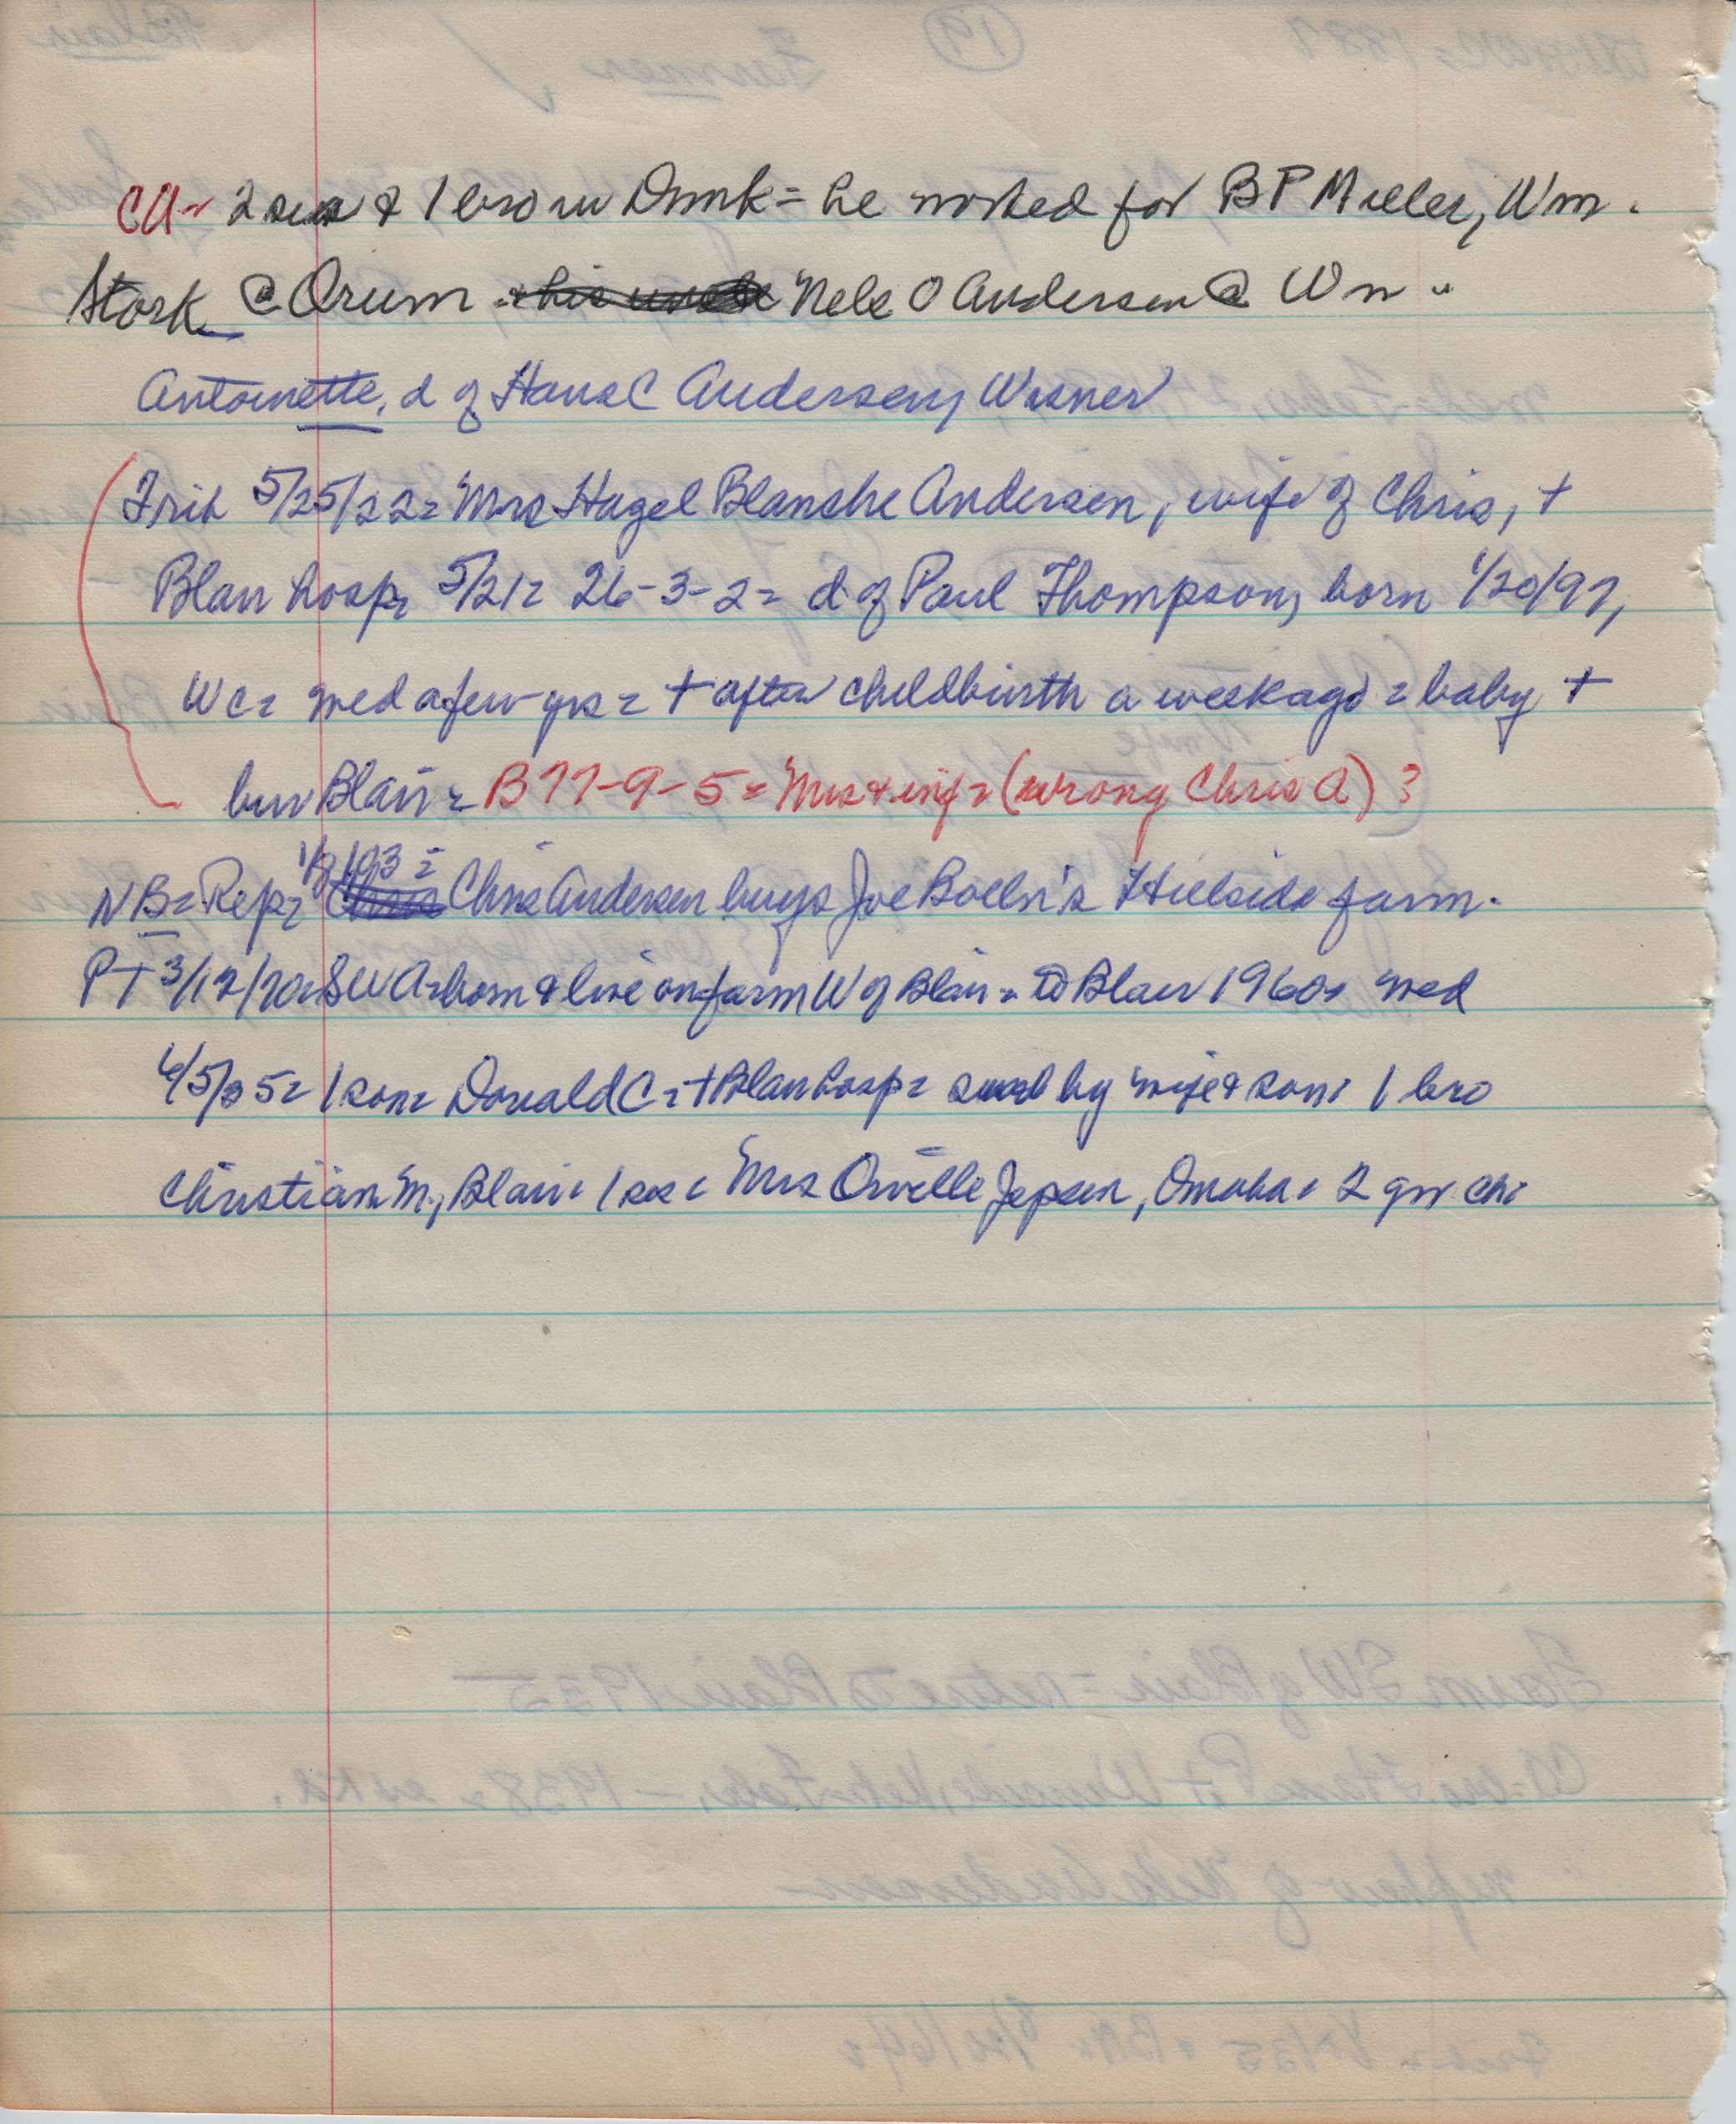 CA = 2 sis & 1 bro in Dnmk = he worked for B P Miller, Wm.
Stork @ Orum = & his uncle Nels O Andersen @ Wn -
Antoinette, d of Hans C Andersen, Wasner
Trib 5/25/22 = Mrs Hazel Blanche Andersen, wife of Chris, +
Blair hosp = 5/21 = 26-3-2 = d of Paul Thompson, born 1/20/97,
WC = med a few yrs = + after childbirth a week ago = baby +
bur Blair = B 77-9-5 = Mrs & inf = (wrong Chris A) ?
1/8/03 =
NB = Rep = Chris Andersen buys Joe Boeln's Hillside farm.
PT 3/12/70 = SW A = born & live on farm W of Blair = to Blair 1960 = med
6/5/35 = 1 son = Donald C = + Blair hosp = surv by wife & son = 1 bro
Christian M, Blair = 1 sis = Mrs Orville Jepsen, Omaha = 2 gr chi